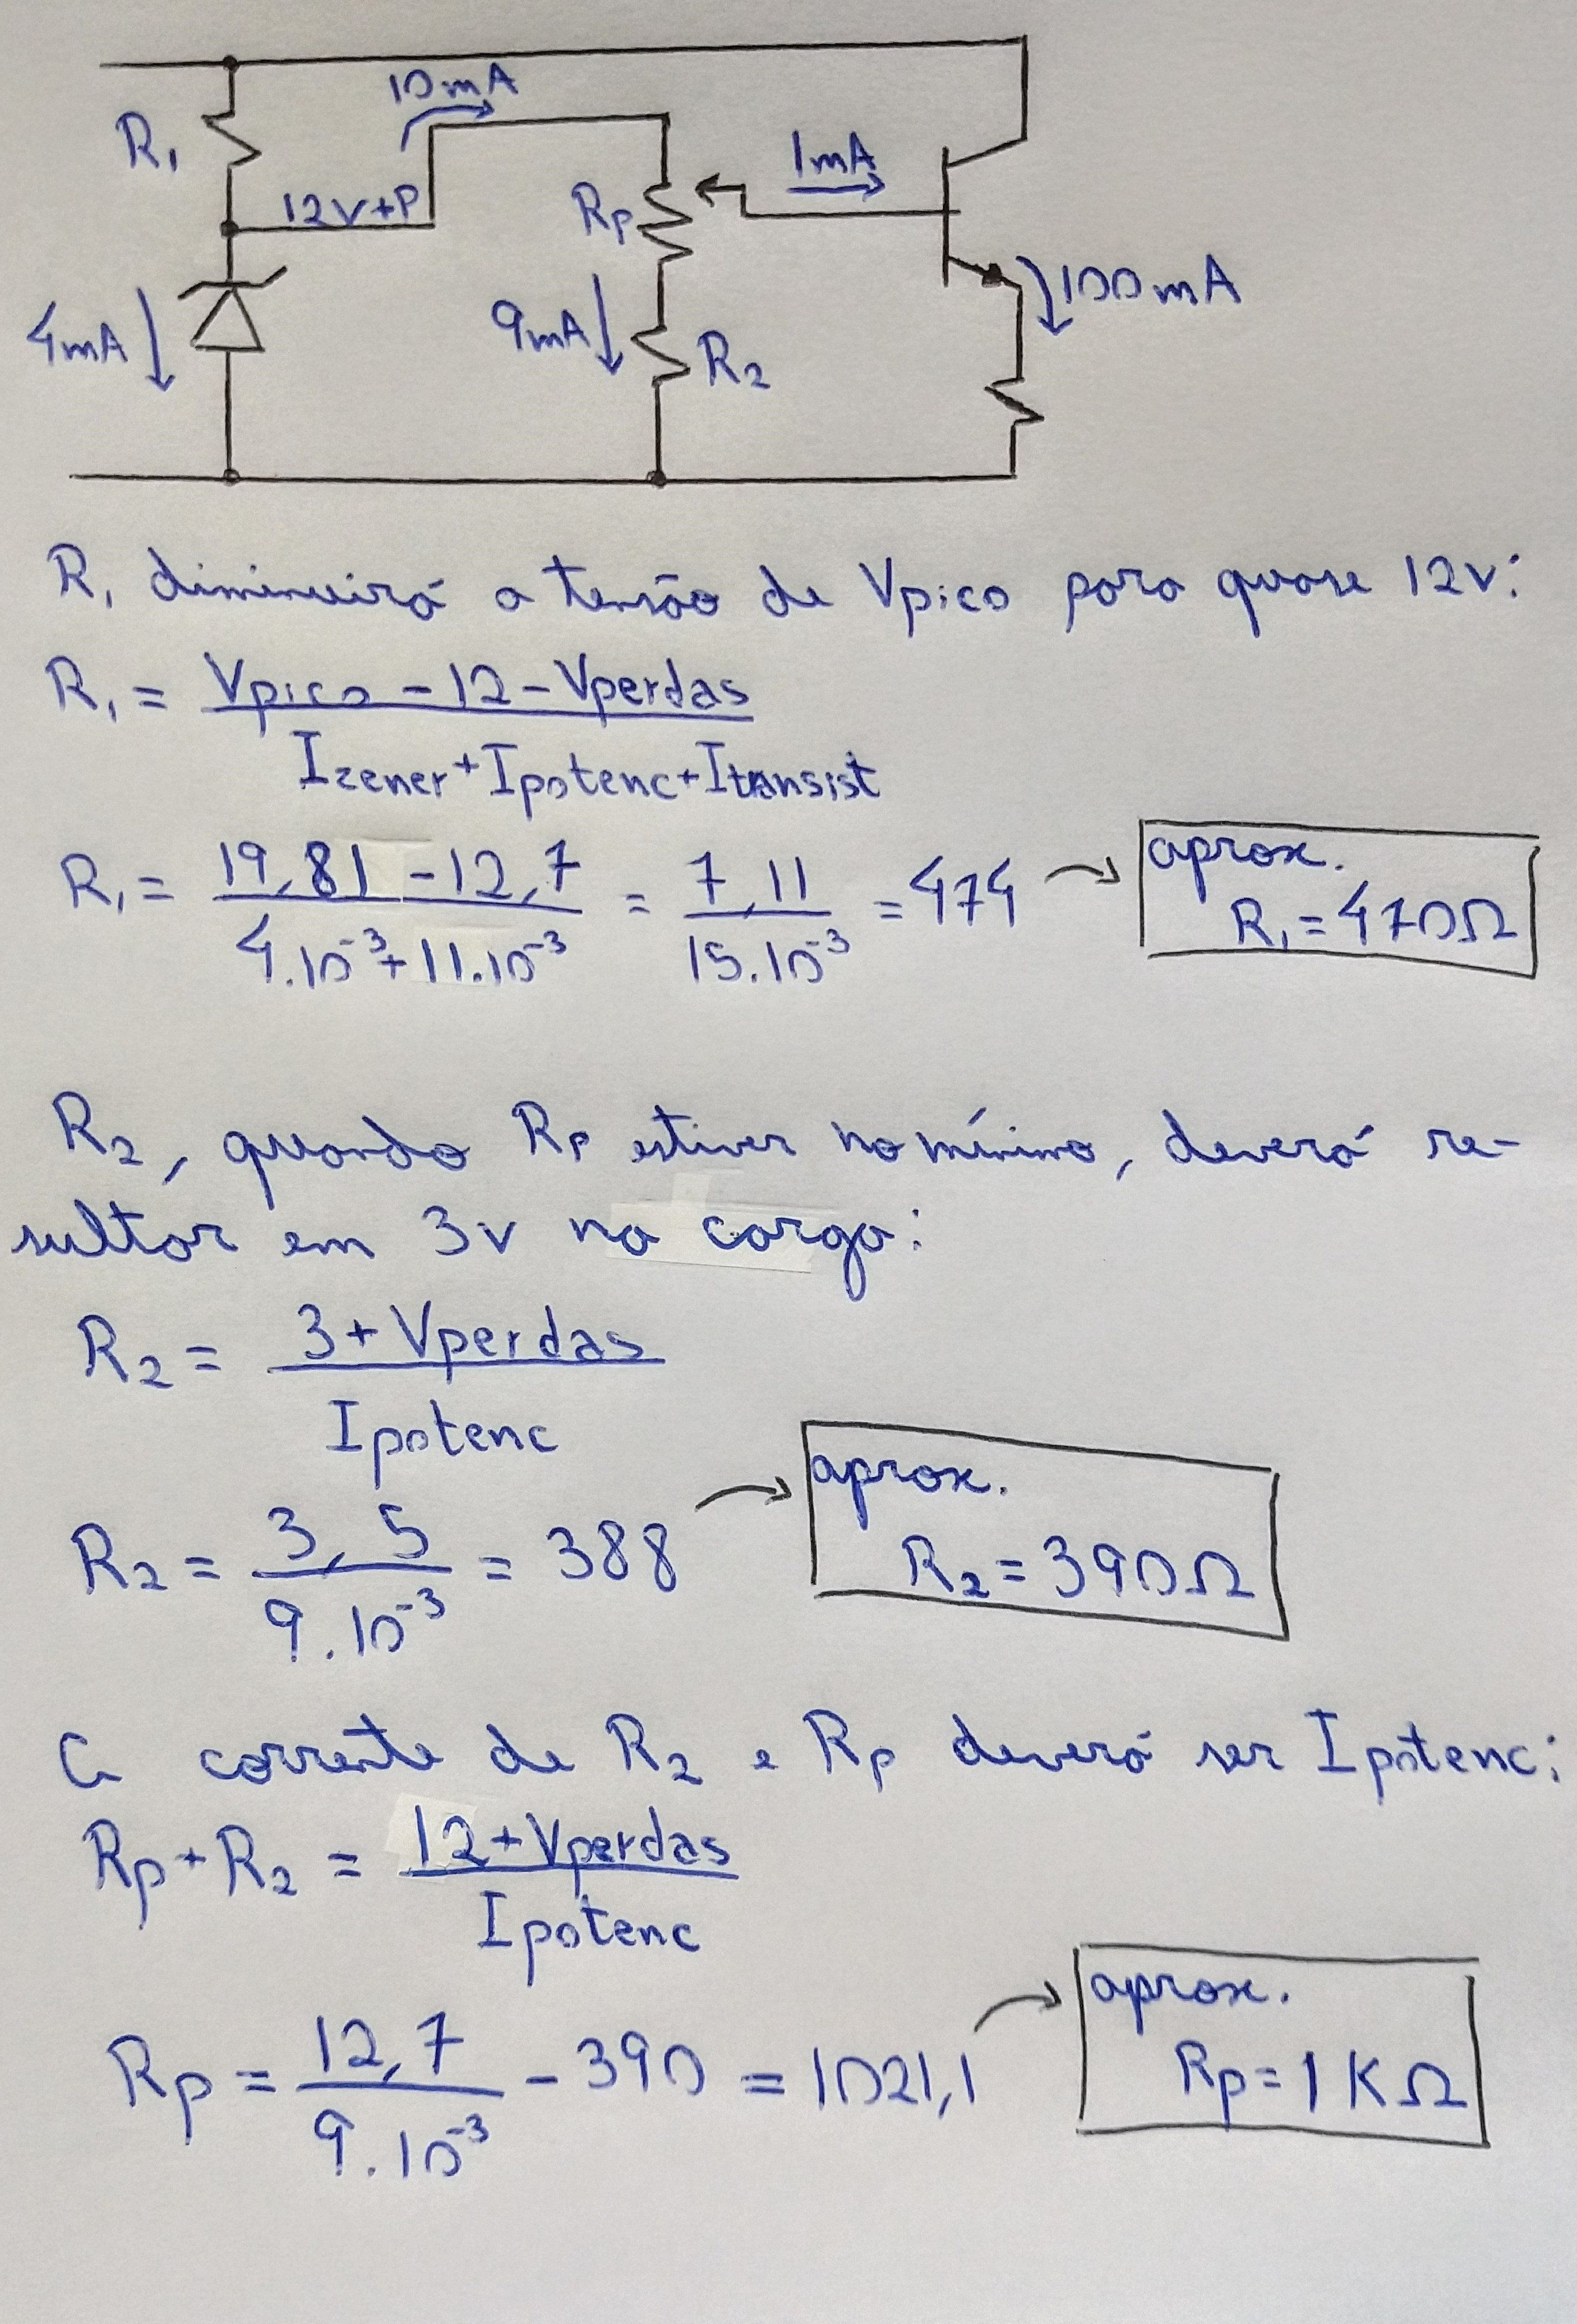 10mA
R₁
12V+P
Rp
1mA
4mA
9mA
R₂
100mA
R₁ diminuirá a tensão de Vpico para quase 12v:
R₁ = Vpico - 12 - Vperdas
Izener + Ipotenc + Itransist
R₁ = 19,81 - 12,7 / 4.10⁻³ + 11.10⁻³ = 7,11 / 15.10⁻³ = 474 → aprox.
R₁ = 470Ω
R₂, quando Rp estiver no mínimo, deverá re-
sultar em 3v na carga:
R₂ = 3 + Vperdas
Ipotenc
R₂ = 3,5 / 9.10⁻³ = 388 → aprox.
R₂ = 390Ω
A corrente de R₂ e Rp deverá ser Ipotenc:
Rp + R₂ = 12 + Vperdas
Ipotenc
Rp = 12,7 / 9.10⁻³ - 390 = 1021,1 → aprox.
Rp = 1KΩ